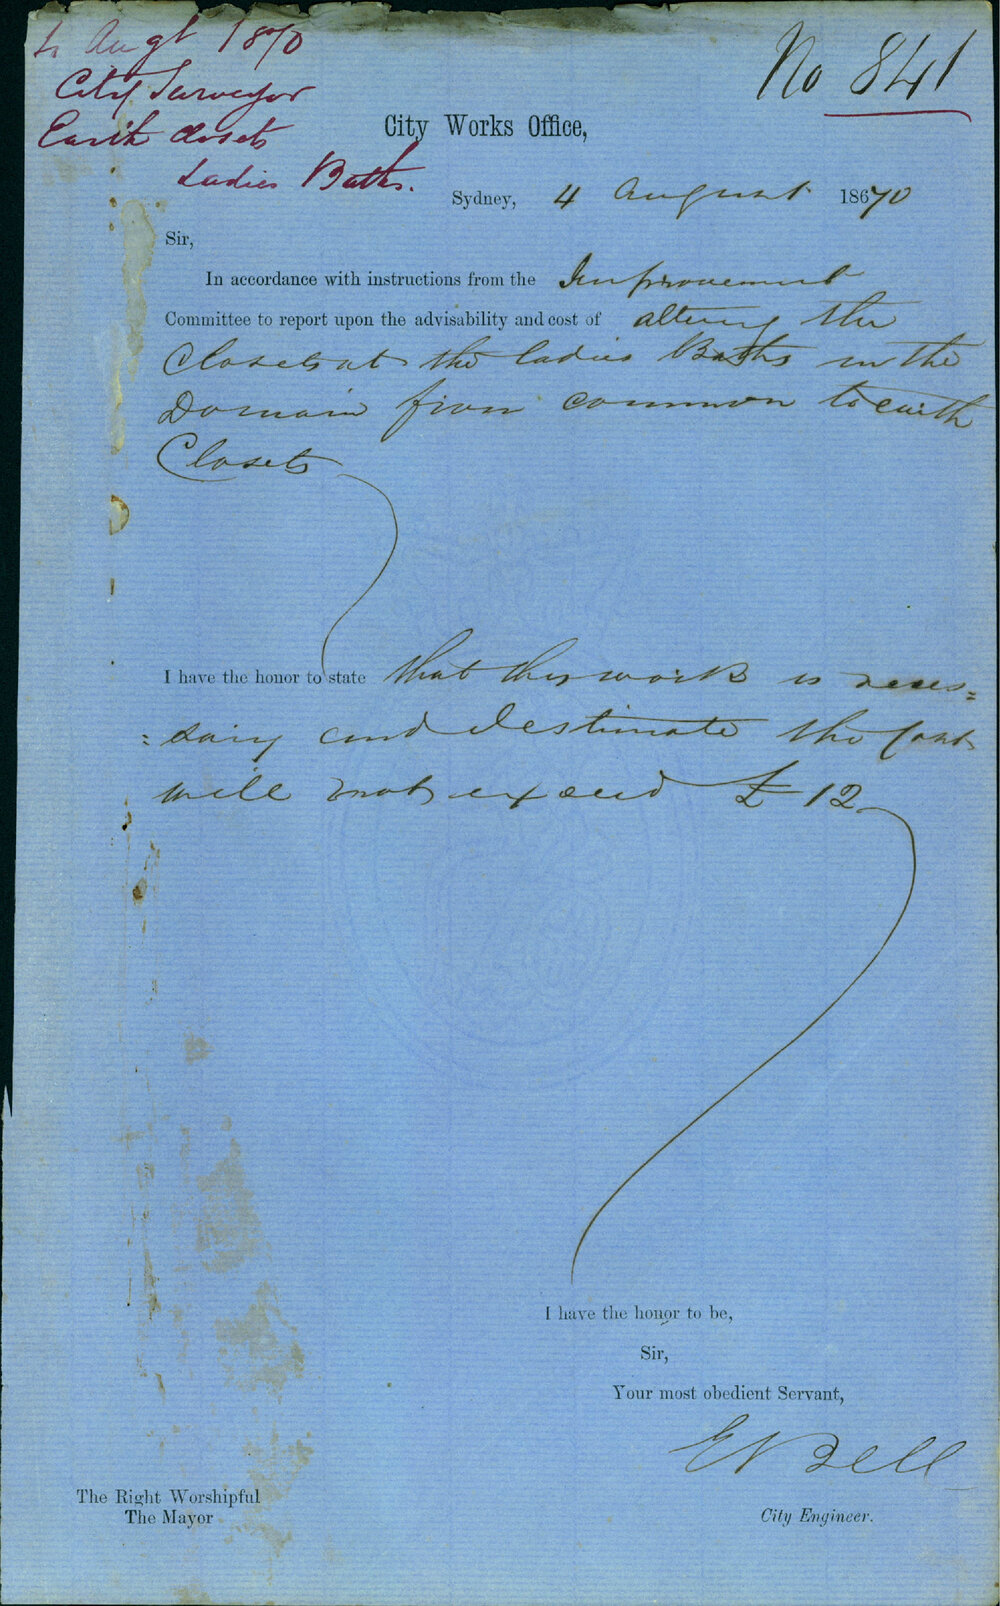 4 Augt 1870
City Surveyor
Earth closets
Ladies Baths.
No 841
City Works Office,
Sydney, 4 August 18670
Sir,
In accordance with instructions from the Improvement
Committee to report upon the advisability and cost of altering the
Closets at the ladies Baths in the
Domain from common to earth
Closets
I have the honor to state that this work is neces=
=sary and I estimate the cost
will not exceed £12
I have the honor to be,
Sir,
Your most obedient Servant,
E Bell
City Engineer.
The Right Worshipful
The Mayor